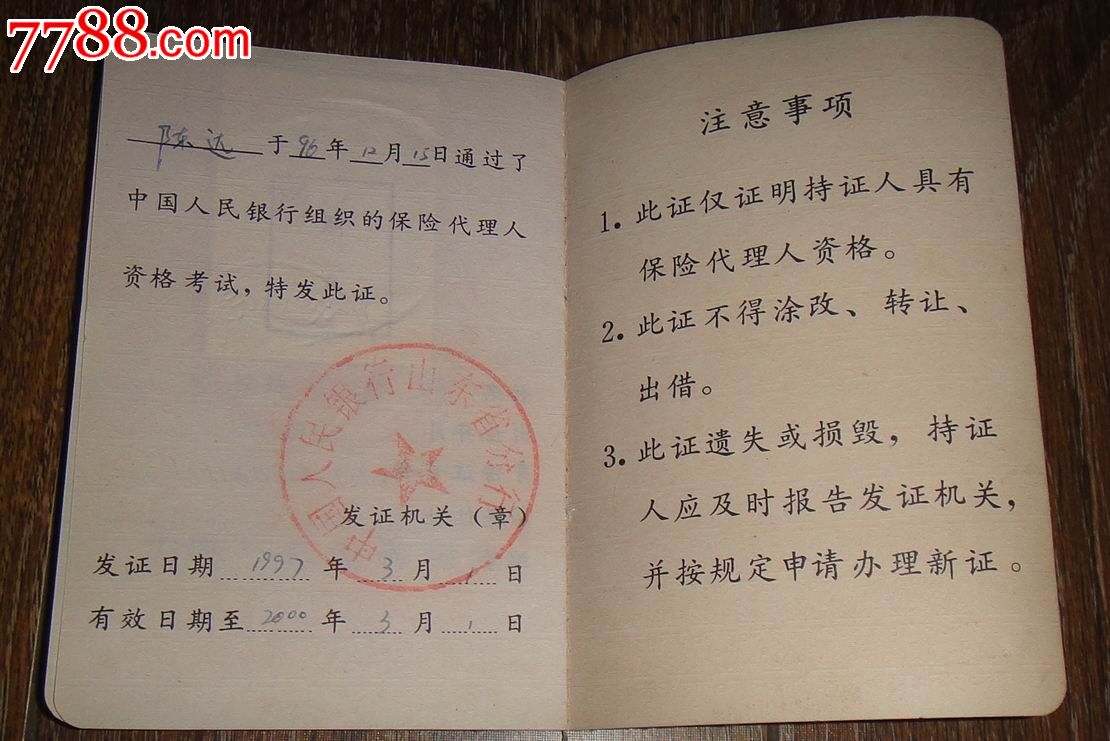 7788.com
陈远 于 96 年 12 月 15 日通过了
中国人民银行组织的保险代理人
资格考试，特发此证。
中国人民银行山东省分行
发证机关（章）
发证日期 1997 年 3 月 1 日
有效日期至 2000 年 3 月 1 日
注意事项
1. 此证仅证明持证人具有
保险代理人资格。
2. 此证不得涂改、转让、
出借。
3. 此证遗失或损毁，持证
人应及时报告发证机关，
并按规定申请办理新证。